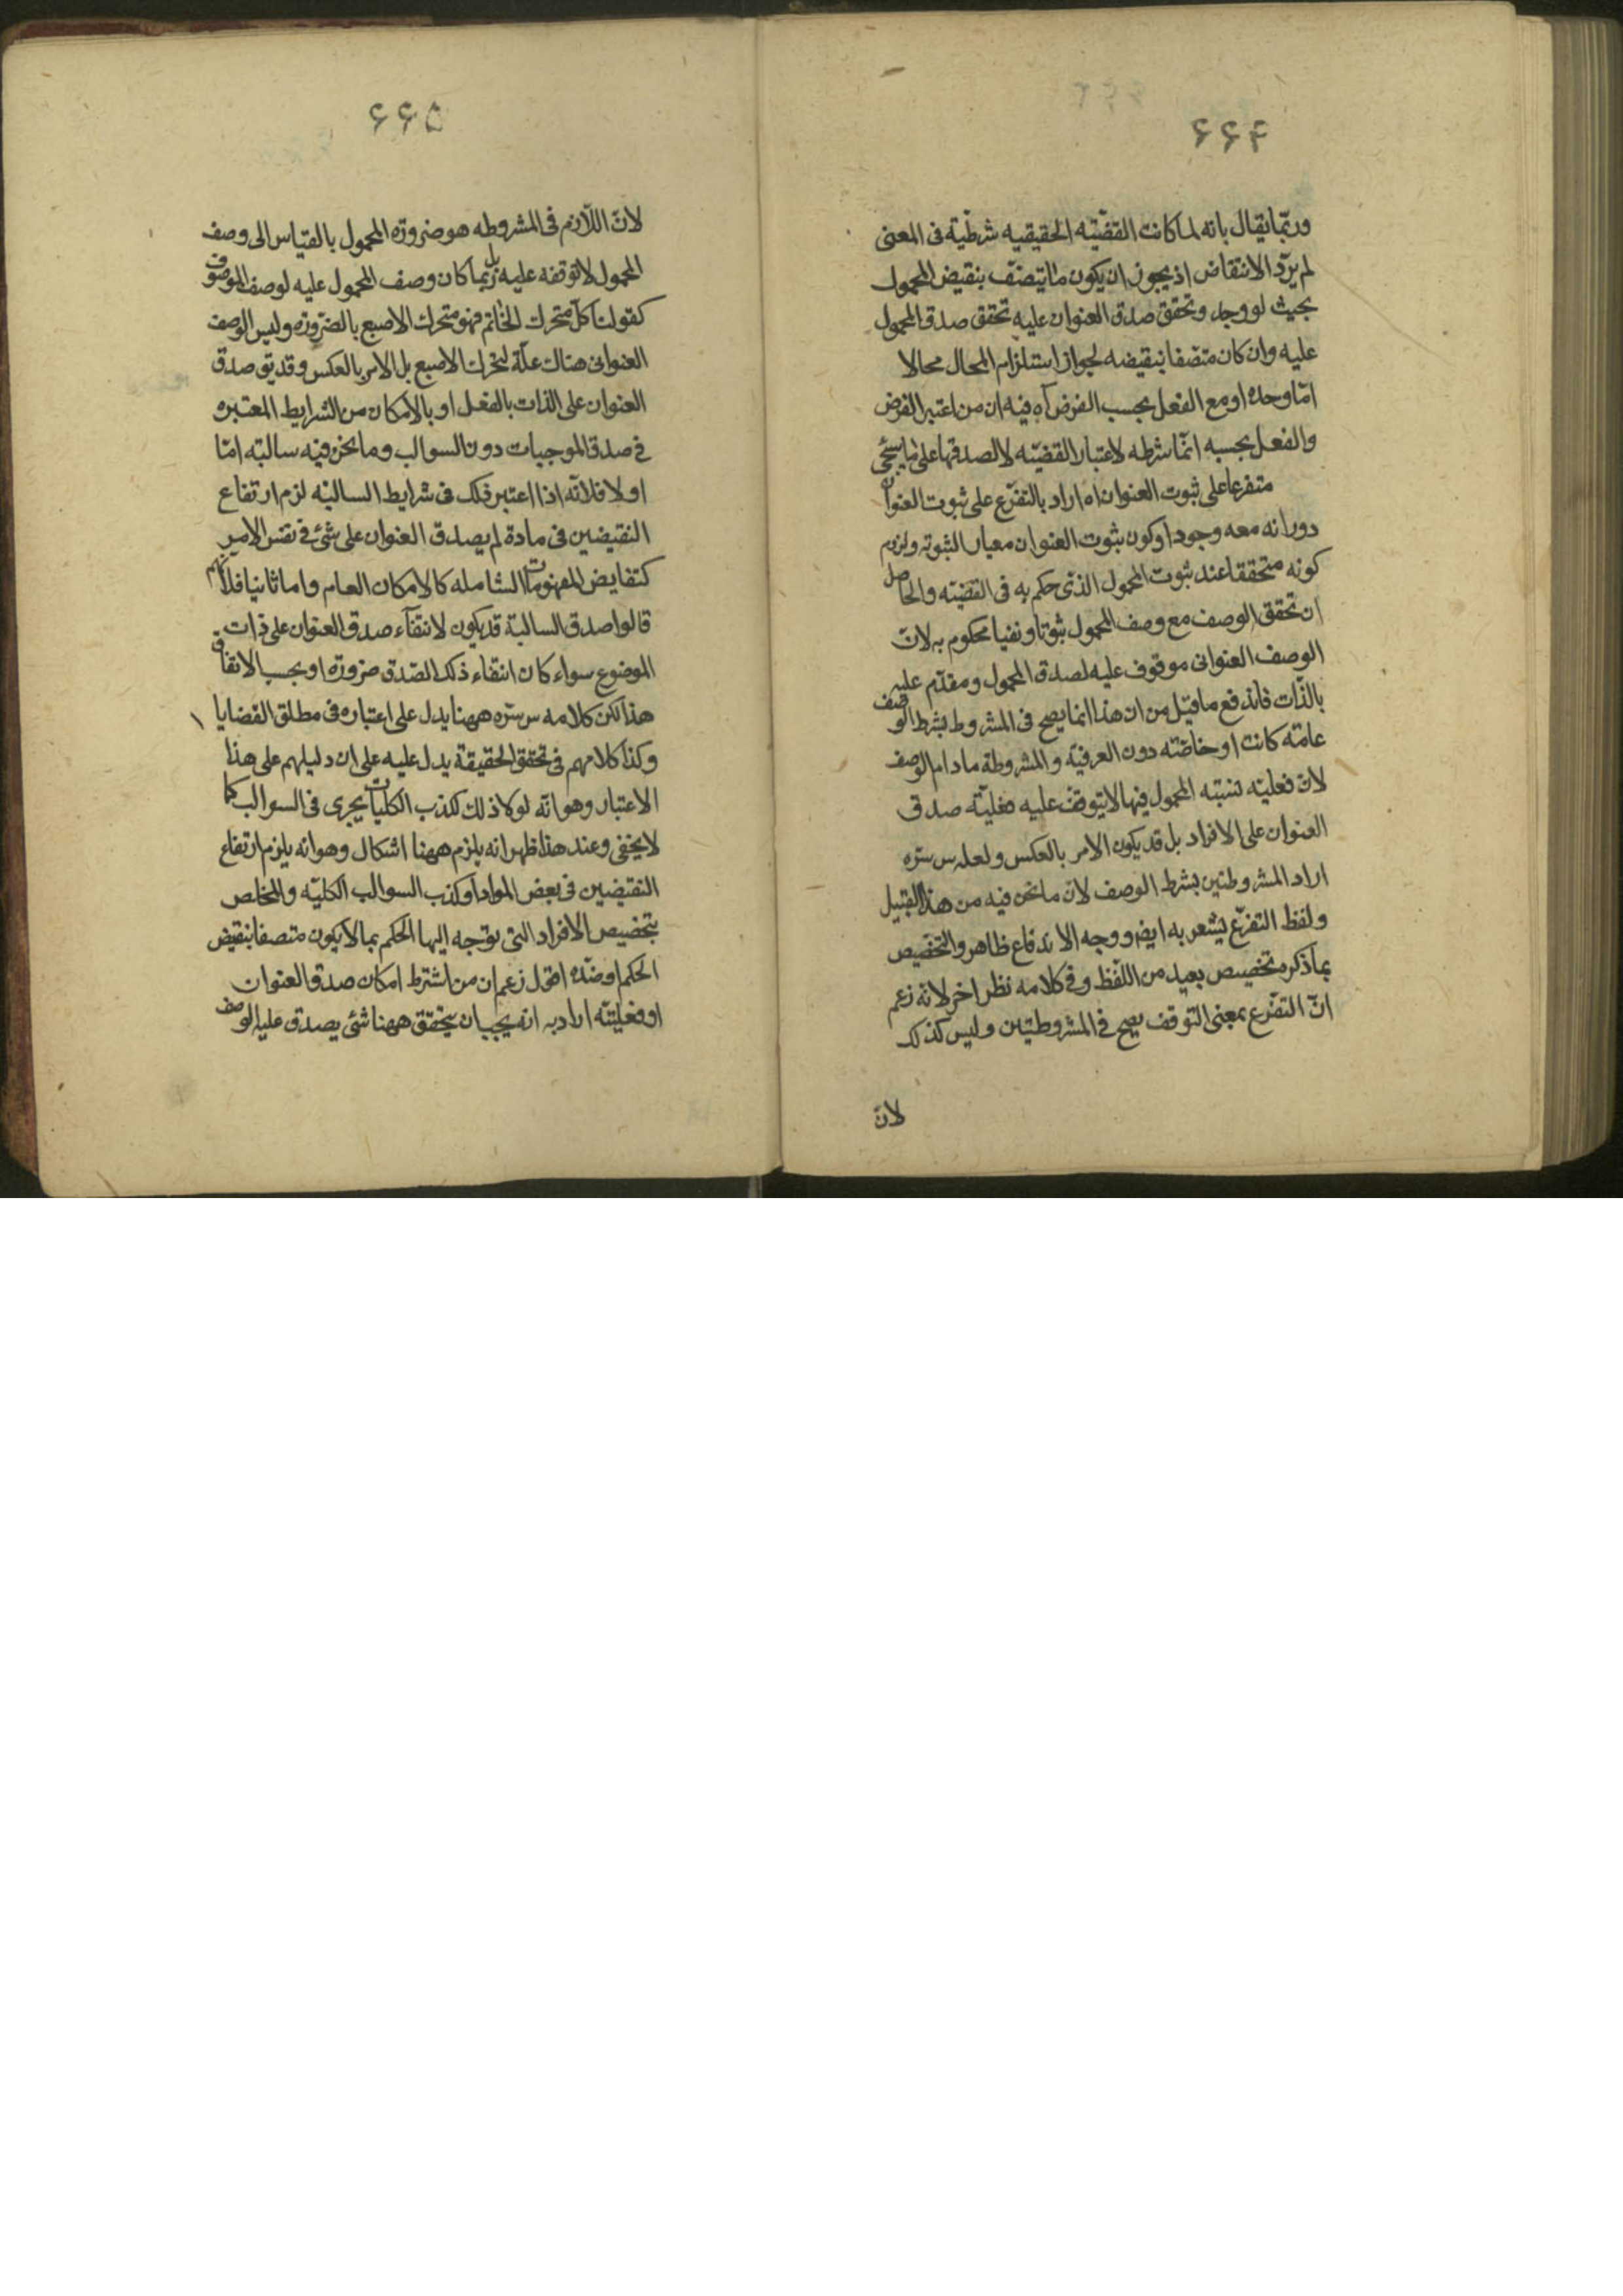 ۶۶۴
وربّما يقال بانه لما كانت القضيّه الحقيقيه شرطيّة فى المعنى
لم يرّد الانتقاض اذ يجوز ان يكون ما يتصف بنقيض المحمول
بحيث لو وجد وتحقق صدق العنوان عليه تحقق صدق المحمول
عليه وان كان متصفا بنقيضه لجواز استلزام المحال محالا
امّا وحده او مع الفعل بحسب الفرض آه فيه ان من اعتبر الفرض
والفعل بحسبه انّما شرطه لاعتبار القضيّه لا لصدقها على ما سيجئ
متفرعا على ثبوت العنوان اه اراد بالتفرّع على ثبوت العنوان
دورانه معه وجودا وكون ثبوت العنوان معيارا لثبوته ولزوم
كونه متحققا عند ثبوت المحمول الذى حكم به فى القضيّه والحاصل
ان تحقق الوصف مع وصف المحمول ثبوتا ونفيا محكوم به لانّ
الوصف العنوانى موقوف عليه لصدق المحمول ومقدّم عليه
بالذّات فاندفع ما قيل من ان هذا انما يصح فى المشروط بشرط الوصف
عامّه كانت او خاصّته دون العرفيّه والمشروطة مادام الوصف
لانّ فعليّه نسبته المحمول فيها لا يتوقف عليه فعليّه صدق
العنوان على الافراد بل قد يكون الامر بالعكس ولعله س سرّه
اراد المشروطتين بشرط الوصف لانّ ما نحن فيه من هذا القبيل
ولفظ التفرّع يشعر به ايضا ووجه الاندفاع ظاهر والتخصيص
بما ذكره تخصيص بعيد من اللّفظ وفى كلامه نظر اخر لانه زعم
انّ التفرّع بمعنى التوقف يصح فى المشروطتين وليس كذلك
لانّ
۶۶۵
لانّ اللّازم فى المشروطه هو ضرورة المحمول بالقياس الى وصف
المحمول لا توقفه عليه بل ربما كان وصف المحمول عليه لوصف الموصوف
كقولنا كلّ متحرك الخاتم فهو متحرك الاصبع بالضّرورة وليس الوصف
العنوانى هناك علّة لتحرك الاصبع بل الامر بالعكس وقد يق صدق
العنوان على الذات بالفعل او بالامكان من الشرايط المعتبره
فى صدق الموجبات دون السوالب وما نحن فيه سالبته امّا
اولا فلانّه اذا اعتبر ذلك فى شرايط السالبه لزم ارتفاع
النقيضين فى مادة لم يصدق العنوان على شئ فى نفس الامر
كنقايض المفهومات الشامله كالامكان العام واما ثانيا فلانّهم
قالوا صدق السالبة قد يكون لانتفآء صدق العنوان على ذات
الموضوع سواء كان انتفاء ذلك الصّدق ضرورة او بحسب الاتفاق
هذا لكن كلامه س سرّه ههنا يدل على اعتباره فى مطلق القضايا
وكذا كلامهم فى تحقق الحقيقة يدل عليه على ان دليلهم على هذا
الاعتبار وهو انّه لولا ذلك لكذب الكليات يجرى فى السوالب كما
لا يخفى وعند هذا ظهر انه يلزم ههنا اشكال وهو انه يلزم ارتفاع
النقيضين فى بعض المواد او كذب السوالب الكليّه والمخلص
بتخصيص الافراد التى توجه اليها الحكم بما لا يكون متصفا بنقيض
الحكم او ضدّه اقول زعم ان من اشترط امكان صدق العنوان
او فعليّته اراد به انه يجب ان يتحقق ههنا شئ يصدق عليه الوصف